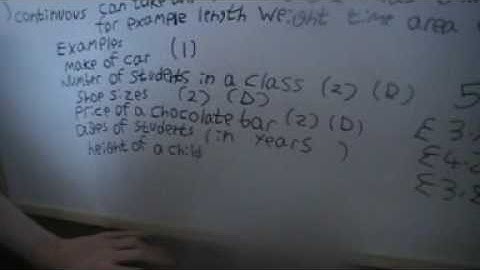 ) continuous can take
for example length weight time area
Examples
make of car (1)
Number of students in a class (2) (D)
shoe sizes (2) (D)
price of a chocolate bar (2) (D)
ages of students (in years )
height of a child
5
£3.
£4.
£3.